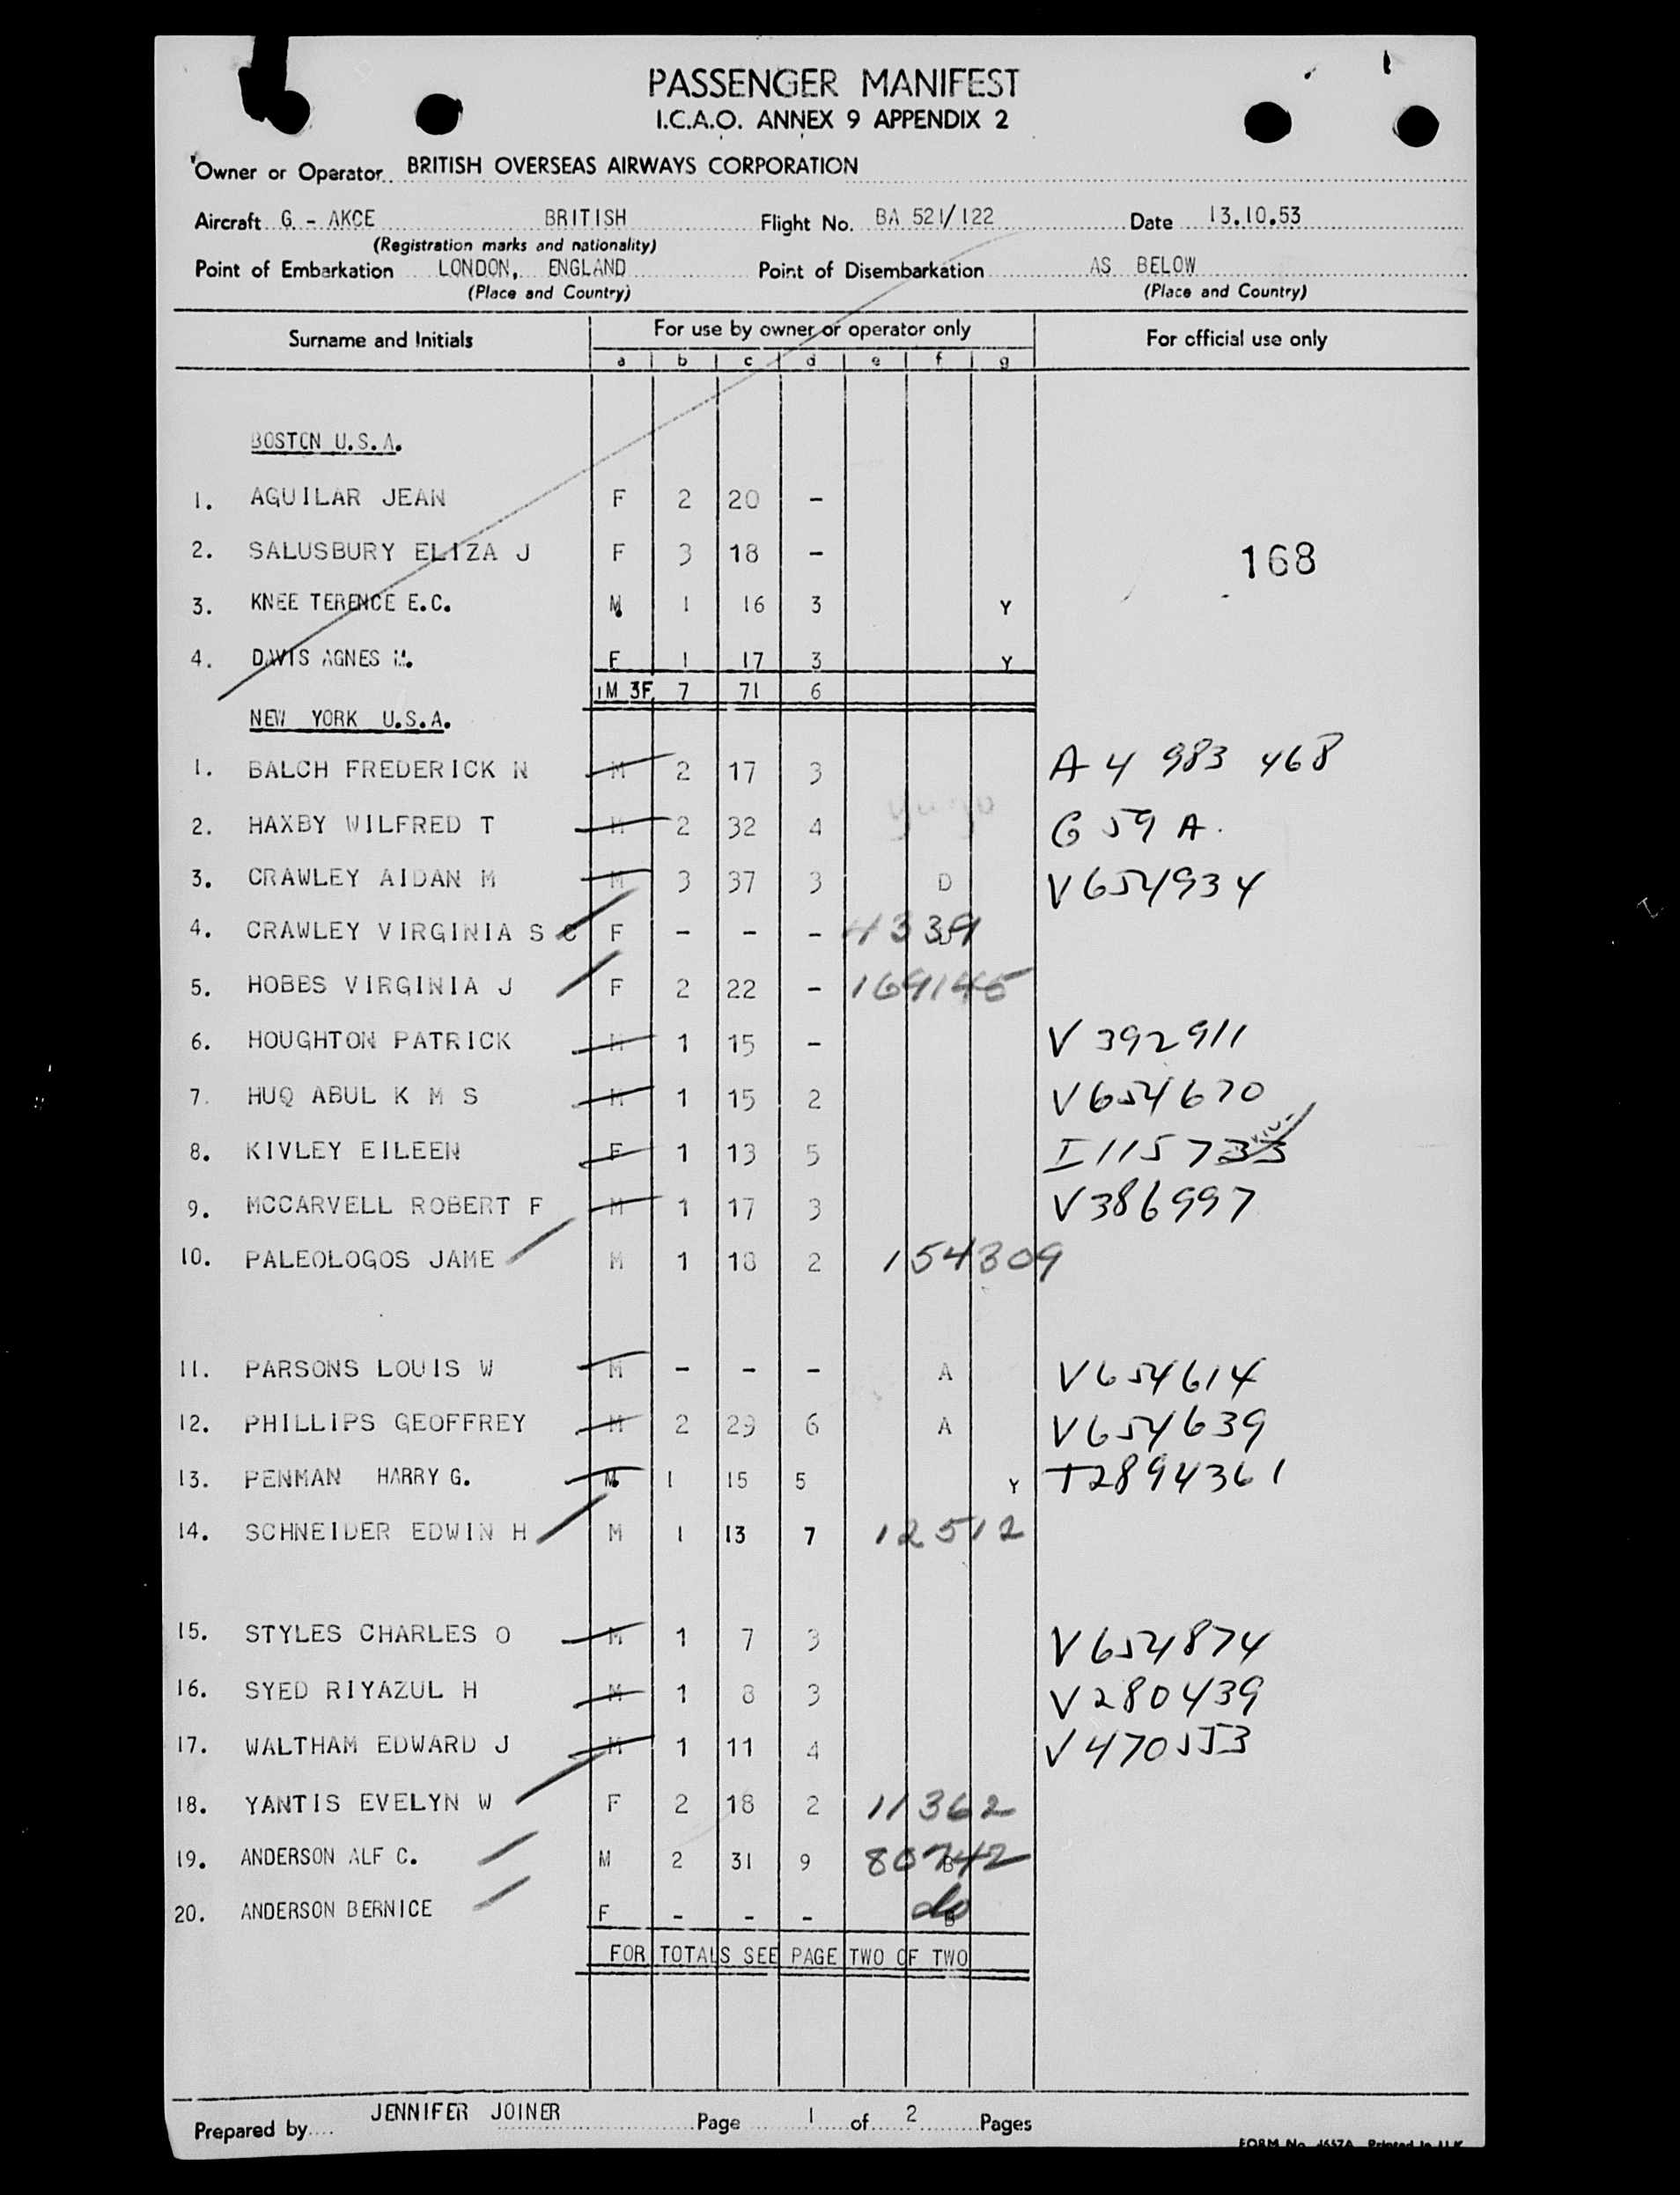 PASSENGER MANIFEST
I.C.A.O. ANNEX 9 APPENDIX 2
Owner or Operator BRITISH OVERSEAS AIRWAYS CORPORATION
Aircraft G. - AKCE BRITISH Flight No. BA 521/122 Date 13.10.53
(Registration marks and nationality)
Point of Embarkation LONDON, ENGLAND Point of Disembarkation AS BELOW
(Place and Country) (Place and Country)
Surname and Initials For use by owner or operator only For official use only
a b c d e f g
BOSTON U.S.A.
1. AGUILAR JEAN F 2 20 -
2. SALUSBURY ELIZA J F 3 18 - 168
3. KNEE TERENCE E.C. M. 1 16 3 Y
4. DAVIS AGNES M. F 1 17 3 Y
1M 3F 7 71 6
NEW YORK U.S.A.
1. BALCH FREDERICK N M 2 17 3 A 4 983 468
2. HAXBY WILFRED T M 2 32 4 G 59 A.
3. CRAWLEY AIDAN M M 3 37 3 D V654934
4. CRAWLEY VIRGINIA S C F - - - 4339
5. HOBBS VIRGINIA J F 2 22 - 169145
6. HOUGHTON PATRICK M 1 15 - V 392911
7. HUQ ABUL K M S M 1 15 2 V654670
8. KIVLEY EILEEN F 1 13 5 I115733
9. MCCARVELL ROBERT F M 1 17 3 V386997
10. PALEOLOGOS JAME M 1 18 2 154309
11. PARSONS LOUIS W M - - - A V654614
12. PHILLIPS GEOFFREY M 2 29 6 A V654639
13. PENMAN HARRY G. M. 1 15 5 Y T2894361
14. SCHNEIDER EDWIN H M 1 13 7 12512
15. STYLES CHARLES O M 1 7 3 V654874
16. SYED RIYAZUL H M 1 8 3 V280439
17. WALTHAM EDWARD J M 1 11 4 V470553
18. YANTIS EVELYN W F 2 18 2 11362
19. ANDERSON ALF C. M 2 31 9 80742 B
20. ANDERSON BERNICE F - - - do B
FOR TOTALS SEE PAGE TWO OF TWO
Prepared by JENNIFER JOINER Page 1 of 2 Pages
FORM No. Printed in U.K.